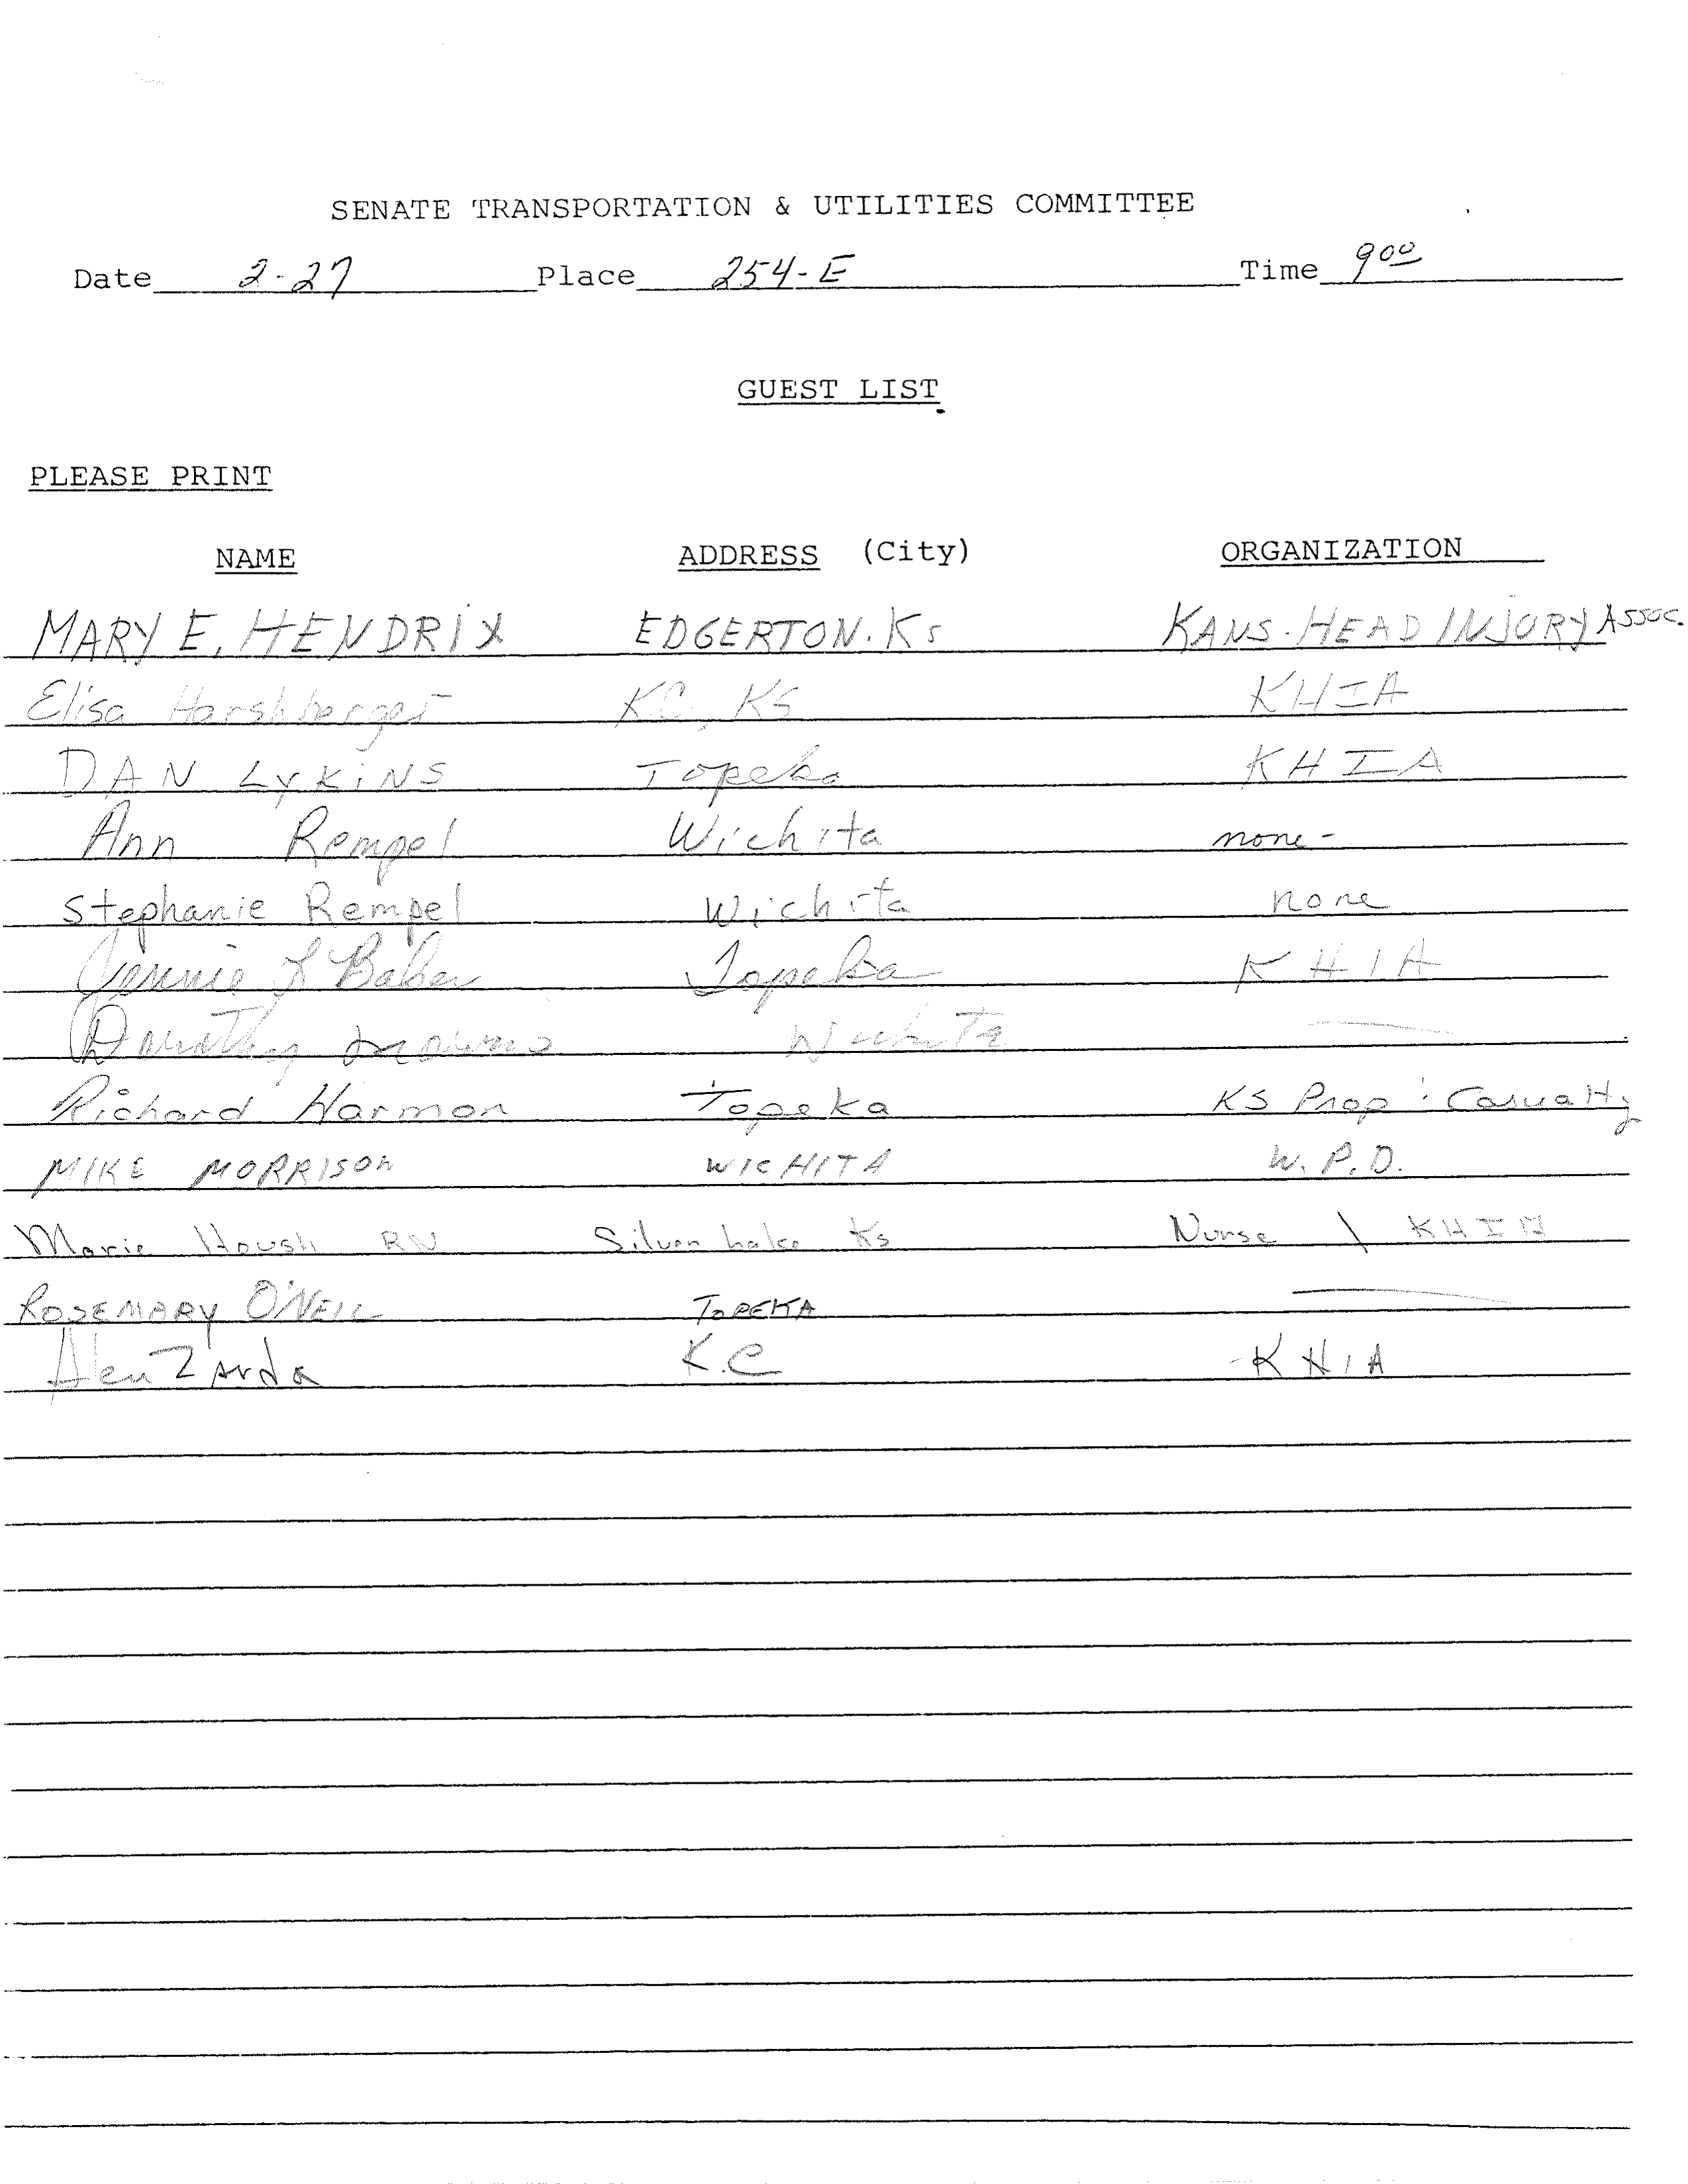 SENATE TRANSPORTATION & UTILITIES COMMITTEE
Date 2-27 Place 254-E Time 9 00
GUEST LIST
PLEASE PRINT
NAME ADDRESS (City) ORGANIZATION
MARY E. HENDRIX EDGERTON. Ks KANS. HEAD INJURY ASSOC.
Elisa Harshberger KC, KS KHIA
DAN LYKINS Topeka KHIA
Ann Rempel Wichita none -
Stephanie Rempel Wichita none
L Baker Topeka KHIA
Dorothy Wichita
Richard Harmon Topeka KS Prop : Casualty
MIKE MORRISON WICHITA W.P.D.
Marie Housh RN Silver Lake Ks Nurse \ KHIA
ROSEMARY O'NEIL TOPEKA
Zarda K.C KHIA